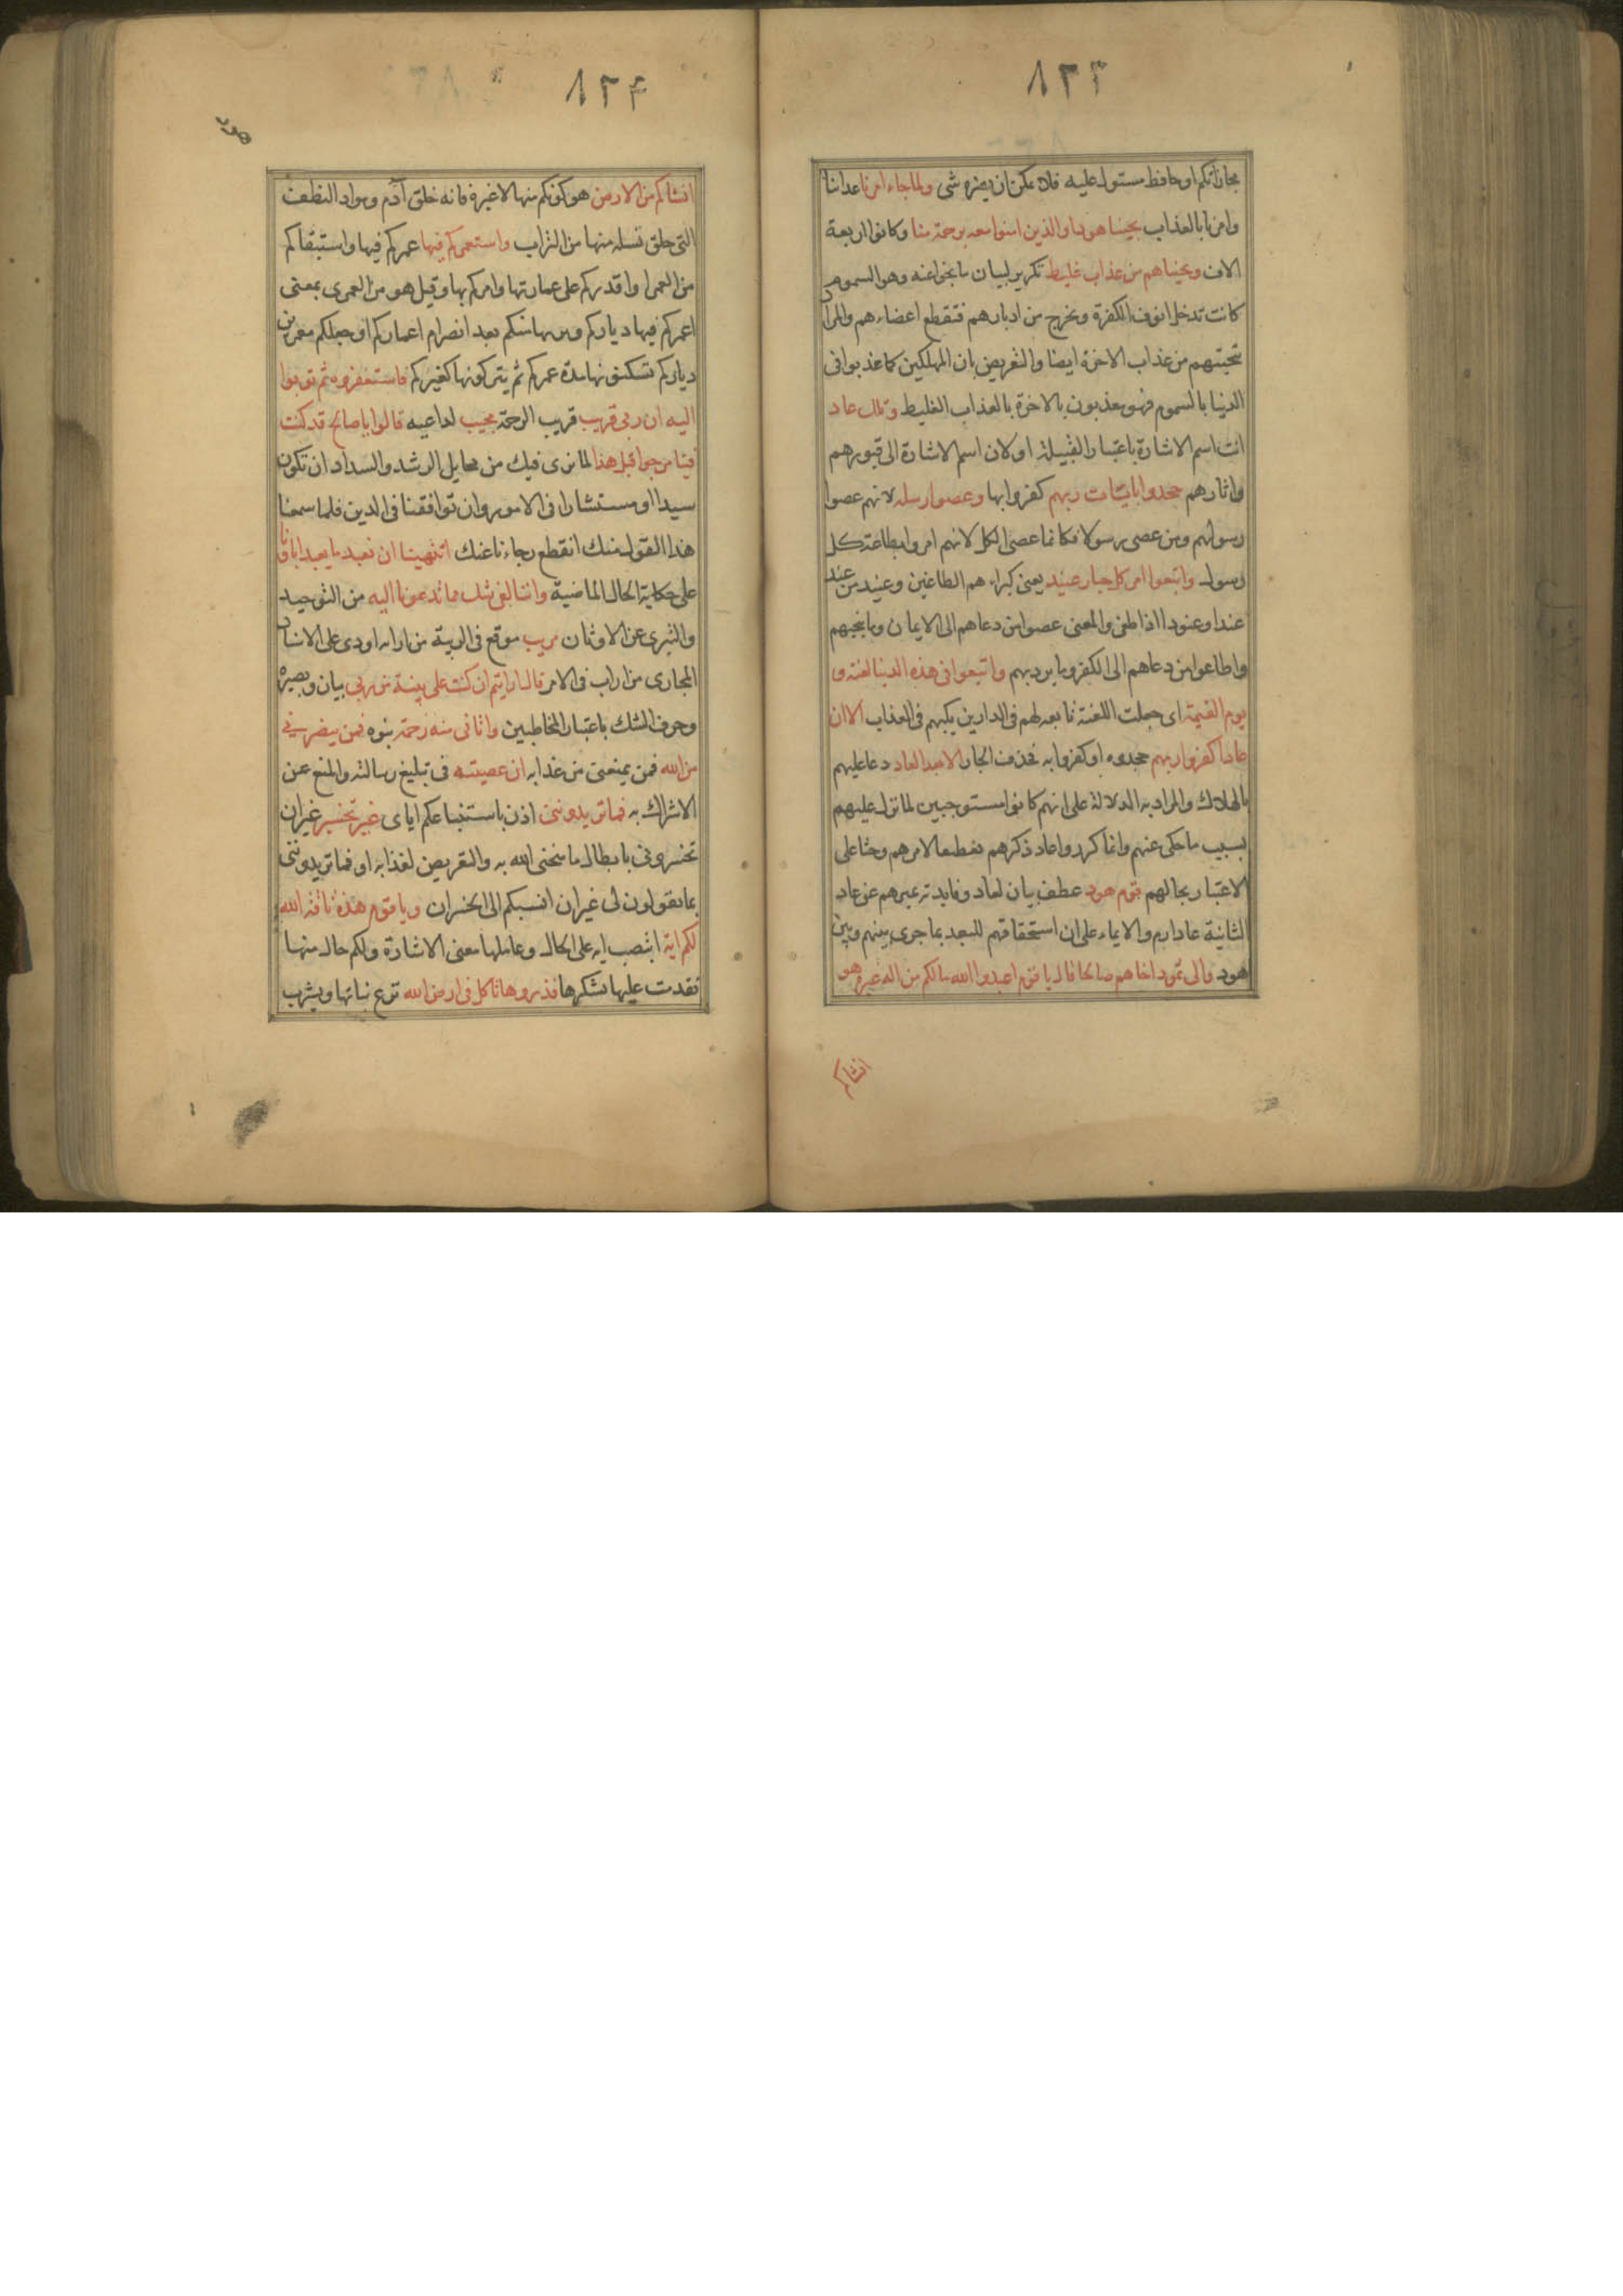 ٨٢٣
مجازاتكم او حافظ مستول عليه فلا يمكن ان يضره شى ولما جاء امرنا عذابنا
وامرنا بالعذاب نجينا هودا والذين امنوا معه برحمة منا وكانوا اربعة
الاف ونجيناهم من عذاب غليظ تكرير لبيان ما نجوا عنه وهو السموم
كانت تدخل انوف الكفرة وتخرج من ادبارهم فتقطع اعضاءهم والمراد
تنجيتهم من عذاب الاخرة ايضا والتعريض بان المهلكين كما عذبوا فى
الدنيا بالسموم فهم معذبون بالاخرة بالعذاب الغليظ وتلك عاد
انث اسم الاشارة باعتبار القبيلة او لان اسم الاشارة الى قبورهم
واثارهم جحدوا بايات ربهم كفروا بها وعصوا رسله لانهم عصوا
رسولهم ومن عصى رسولا فكانما عصى الكل لانهم امروا بطاعة كل
رسول واتبعوا امر كل جبار عنيد يعنى كبراءهم الطاغين وعنيد من عند
عندا وعنودا اذا طغى والمعنى عصوا من دعاهم الى الايمان وما ينجيهم
واطاعوا من دعاهم الى الكفر وما يرديهم واتبعوا فى هذه الدنيا لعنة و
يوم القيمة اى جعلت اللعنة تابعة لهم فى الدارين يكبهم فى العذاب الا ان
عادا كفروا ربهم جحدوه او كفروا به فحذف الجار الا بعدا لعاد دعا عليهم
بالهلاك والمراد به الدلالة على انهم كانوا مستوجبين لما نزل عليهم
بسبب ما حكى عنهم وانما كرر الا واعاد ذكرهم تفظيعا لامرهم وحثا على
الاعتبار بحالهم قوم هود عطف بيان لعاد وفايدته تميزهم عن عاد
الثانية عاد ارم والايماء على ان استحقاقهم للبعد بما جرى بينهم وبين
هود والى ثمود اخاهم صالحا قال يا قوم اعبدوا الله ما لكم من اله غيره هو
انشاكم
٨٢۴
انشاكم من الارض هو كونكم منها لا غيره فانه خلق آدم ومواد النطف
التى خلق نسله منها من التراب واستعمركم فيها عمركم فيها واستبقاكم
من العمر او اقدركم على عمارتها وامركم بها وقيل هو من العمرى بمعنى
اعمركم فيها دياركم ويرثها منكم بعد انصرام اعماركم او جعلكم معمرين
دياركم تسكنونها مدة عمركم ثم يتركونها لغيركم فاستغفروه ثم توبوا
اليه ان ربى قريب قريب الرحمة مجيب لداعيه قالوا يا صالح قد كنت
فينا مرجوا قبل هذا لما نرى فيك من مخايل الرشد والسداد ان تكون
سيدا او مستشارا فى الامور وان توافقنا فى الدين فلما سمعنا
هذا القول منك انقطع رجاءنا عنك اتنهينا ان نعبد ما يعبد اباؤنا
على حكاية الحال الماضية واننا لفى شك مما تدعونا اليه من التوحيد
والتبرى عن الاوثان مريب موقع فى الريبة من ارابه او ذى على الاسناد
المجازى من اراب فى الامر قال ارايتم ان كنت على بينة من ربى بيان وبصيرة
وحرف الشك باعتبار المخاطبين واتانى منه رحمة نبوه فمن ينصرنى
من الله فمن يمنعنى من عذابه ان عصيته فى تبليغ رسالته والمنع عن
الاشراك به فما تزيدوننى اذن باستتباعكم اياى غير تخسير غير ان
تخسرونى بابطال ما منحنى الله به والتعريض لعذابه او فما تزيدوننى
بما تقولون لى غير ان انسبكم الى الخسران ويا قوم هذه ناقة الله
لكم اية انتصب ايه على الحال وعاملها معنى الاشارة ولكم حال منها
تقدمت عليها تنكرها فذروها تاكل فى ارض الله ترع نباتها وتشرب